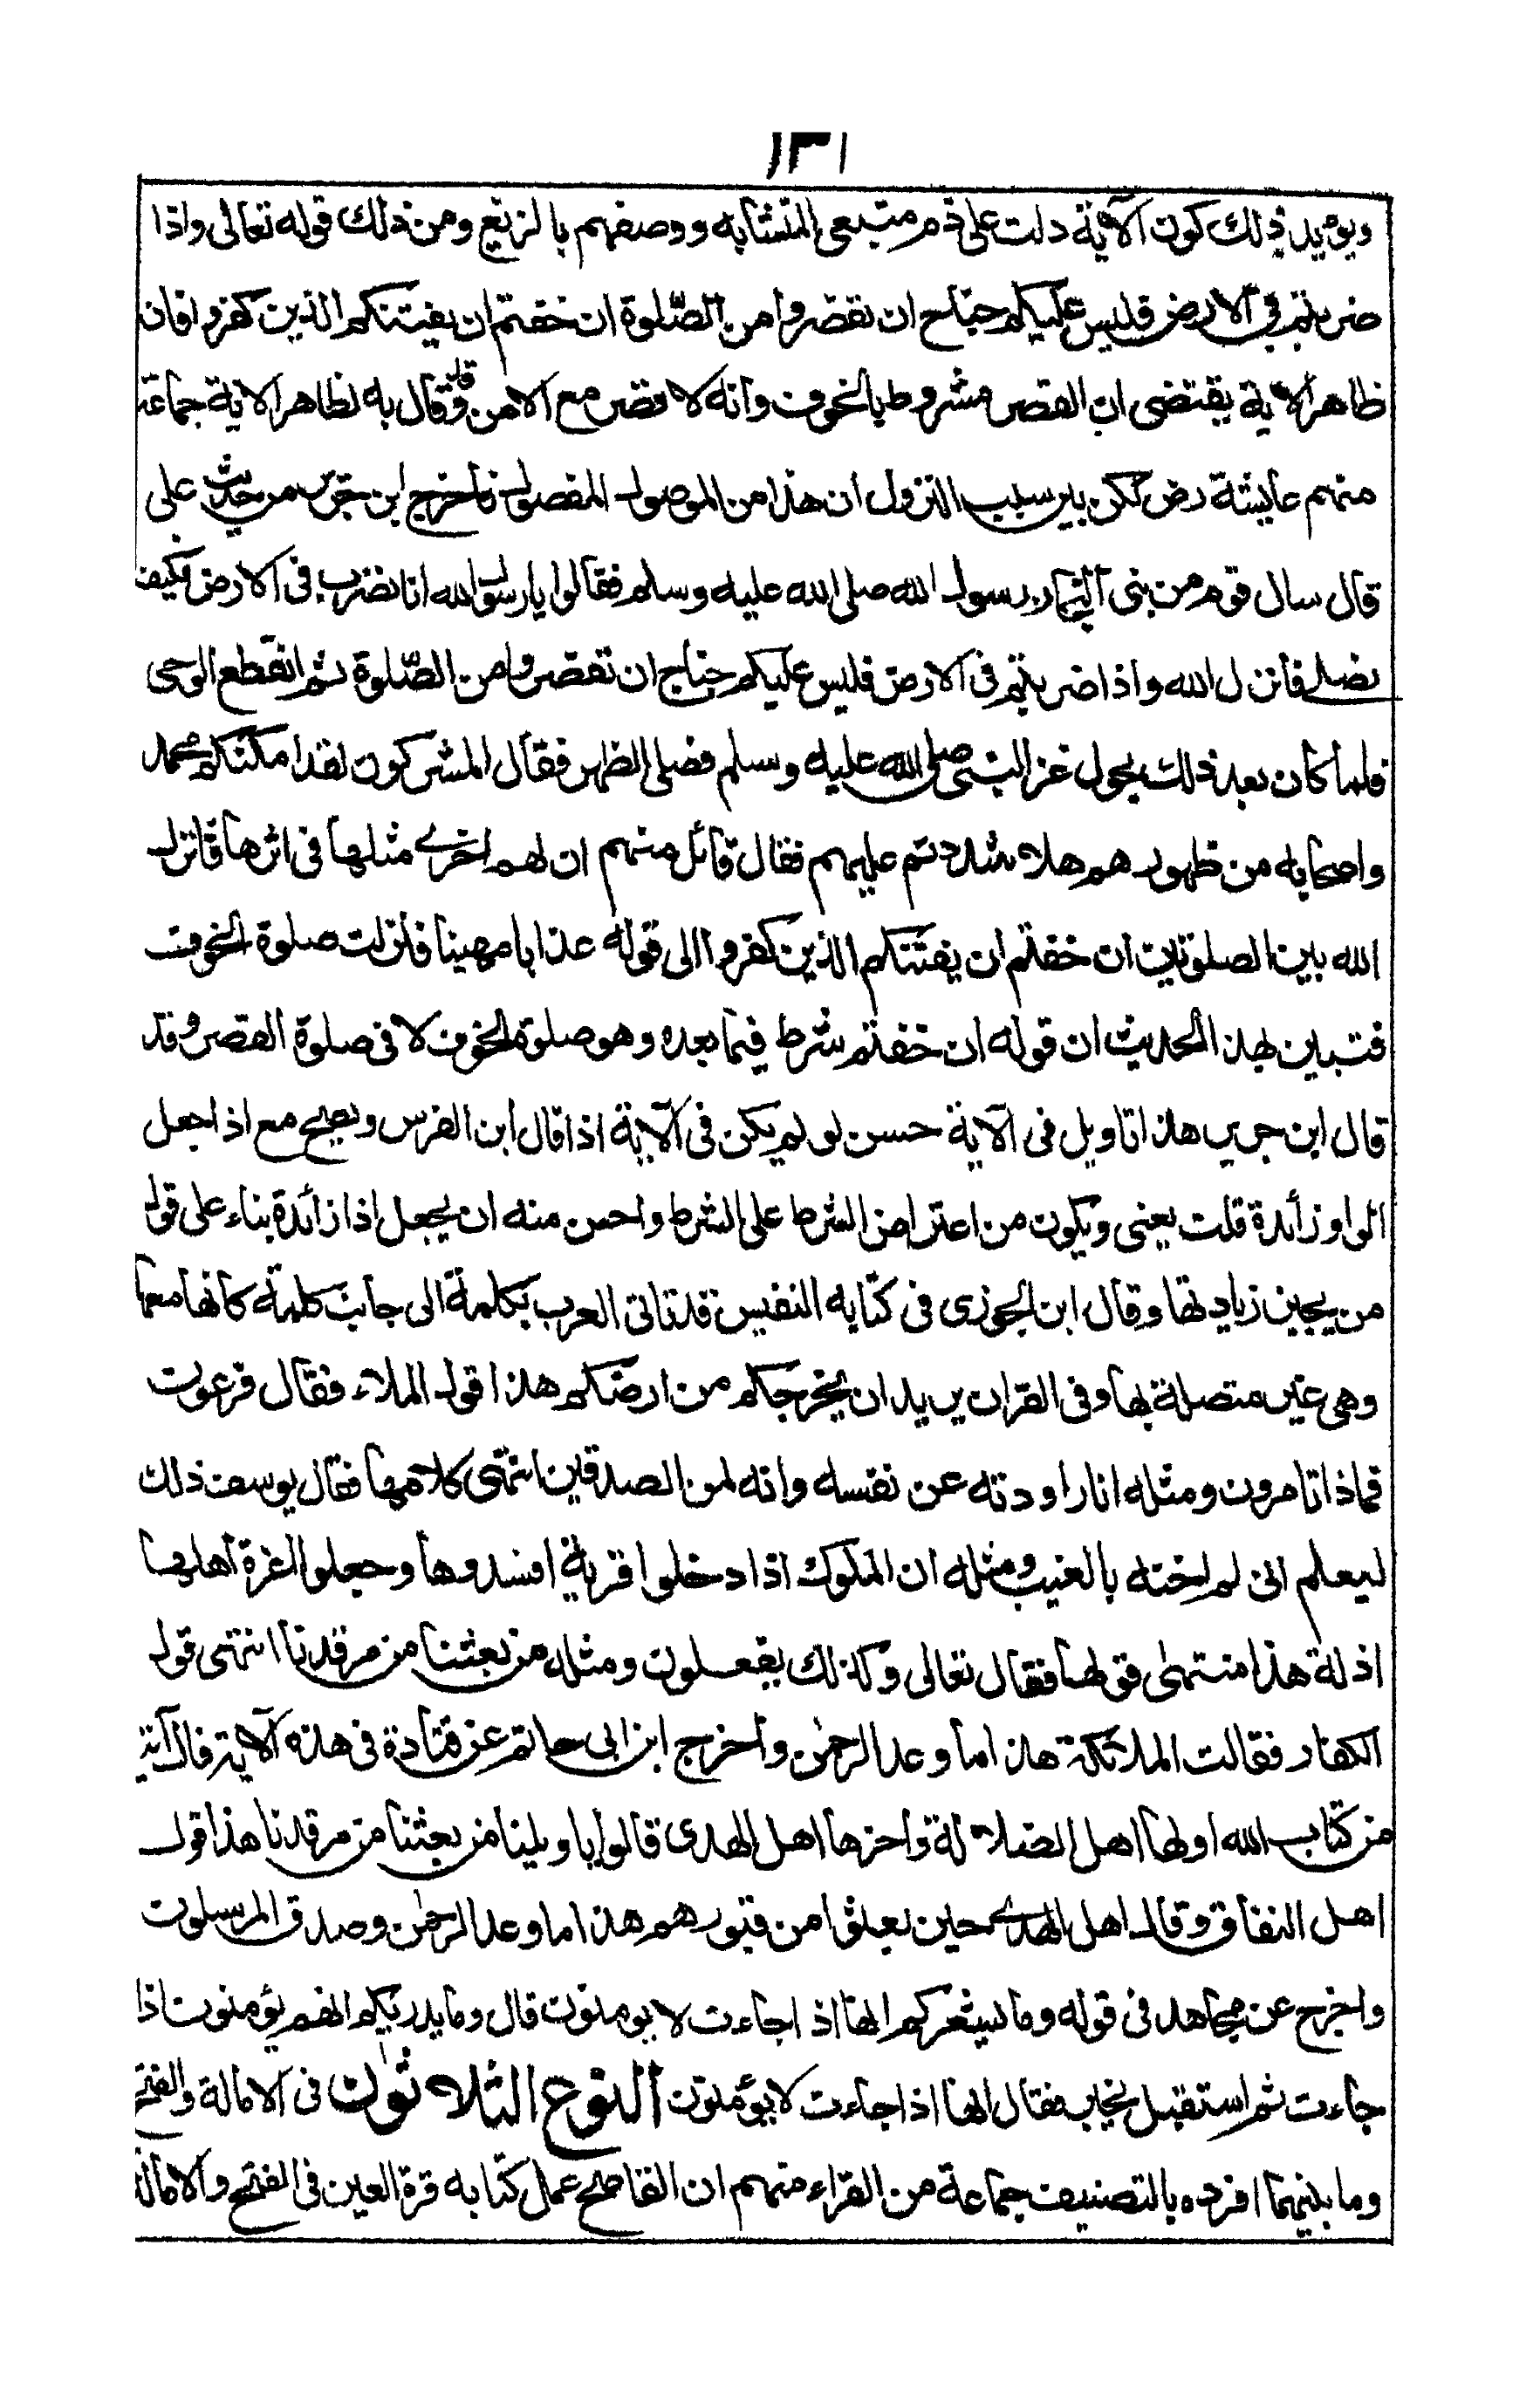 ١٣١
ويؤيد ذلك كون الآية دلت على ذم متبعى المتشابه ووصفهم بالزيغ ومن ذلك قوله تعالى واذا
ضربتم فى الارض فليس عليكم جناح ان تقصروا من الصّلوة ان خفتم ان يفتنكم الذين كفروا فان
ظاهر الاية يقتضى ان القصر مشروط بالخوف وانه لا قصر مع الامن وقد قال به لظاهر الاية جماعة
منهم عايشة رض لكن بين سبب النزول ان هذا من الموصول المفصول فاخرج ابن جرير من حديث على
قال سال قوم من بنى النجار رسول الله صلى الله عليه وسلم فقالوا يا رسول الله انا نضرب فى الارض فكيف
نصلى فانزل الله واذا ضربتم فى الارض فليس عليكم جناح ان تقصروا من الصّلوة ثم انقطع الوحى
فلما كان بعد ذلك بحول غزا النبى صلى الله عليه وسلم فصلى الظهر فقال المشركون لقد امكنكم محمد
واصحابه من ظهورهم هلا شددتم عليهم فقال قائل منهم ان لهم اخرى مثلها فى اثرها فانزل
الله بين الصلوتين ان خفتم ان يفتنكم الذين كفروا الى قوله عذابا مهينا فنزلت صلوة الخوف
فتبين بهذا الحديث ان قوله ان خفتم شرط فيما بعده وهو صلوة الخوف لا فى صلوة القصر وقد
قال ابن جرير هذا تاويل فى الآية حسن لو لم يكن فى الآية اذا قال ابن الفرس ويصح مع اذا جعل
الواو زائدة قلت يعنى ويكون من اعتراض الشرط على الشرط واحسن منه ان يجعل اذا زائدة بناء على قول
من يجيز زيادتها وقال ابن الجوزى فى كتابه النفيس قد تاتى العرب بكلمة الى جانب كلمة كانها معها
وهى غير متصلة بها وفى القران يريد ان يخرجكم من ارضكم هذا قول الملاء فقال فرعون
فماذا تامرون ومثله انا راودته عن نفسه وانه لمن الصدقين انتهى كلامها فقال يوسف ذلك
ليعلم انى لم اخنه بالغيب ومثله ان الملوك اذا دخلوا قرية افسدوها وجعلوا اعزة اهلها
اذلة هذا منتهى قولها فقال تعالى وكذلك يفعلون ومثله من بعثنا من مرقدنا انتهى قول
الكفار فقالت الملائكة هذا ما وعد الرحمٰن واخرج ابن ابى حاتم عن قتادة فى هذه الآية قال آية
من كتاب الله اولها اهل الضلالة واخرها اهل الهدى قالوا يا ويلنا من بعثنا من مرقدنا هذا قول
اهل النفاق وقال اهل الهدى حين بعثوا من قبورهم هذا ما وعد الرحمٰن وصدق المرسلون
واخرج عن مجاهد فى قوله وما يشعركم انها اذا جاءت لا يومنون قال وما يدريكم انهم يؤمنون اذا
جاءت ثم استقبل يخبر فقال انها اذا جاءت لا يؤمنون النوع الثلاثون فى الامالة والفتح
وما بينهما افرده بالتصنيف جماعة من القراء منهم ابن القاصح عمل كتابه قرة العين فى الفتح والامالة